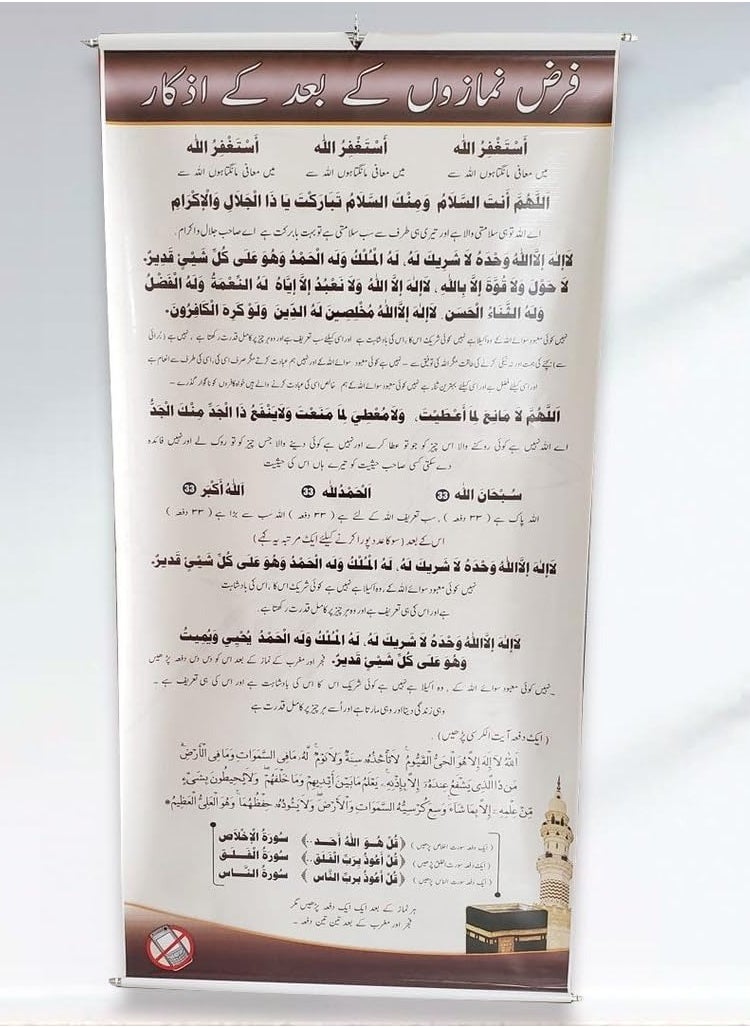 فرض نمازوں کے بعد کے اذکار
أَسْتَغْفِرُ اللّٰه أَسْتَغْفِرُ اللّٰه أَسْتَغْفِرُ اللّٰه
میں معافی مانگتا ہوں اللہ سے میں معافی مانگتا ہوں اللہ سے میں معافی مانگتا ہوں اللہ سے
اَللّٰهُمَّ أَنتَ السَّلَامُ وَمِنْكَ السَّلَامُ تَبَارَكْتَ يَا ذَا الْجَلَالِ وَالْإِكْرَامِ
اے اللہ تو ہی سلامتی والا ہے اور تیری ہی طرف سے سب سلامتی ہے تو بہت بابرکت ہے اے صاحب جلال و اکرام۔
لَا إِلٰهَ إِلَّا اللّٰهُ وَحْدَهُ لَا شَرِيكَ لَهُ، لَهُ الْمُلْكُ وَلَه الْحَمْدُ وَهُوَ عَلَى كُلِّ شَيْئٍ قَدِيرٌ۔
لَا حَوْلَ وَلَا قُوَّةَ إِلَّا بِاللّٰهِ، لَا إِلٰهَ إِلَّا اللّٰهُ وَلَا نَعْبُدُ إِلَّا إِيَّاهُ لَهُ النِّعْمَةُ وَلَهُ الْفَضْلُ
وَلَهُ الثَّنَاءُ الْحَسَن، لَا إِلٰهَ إِلَّا اللّٰهُ مُخْلِصِينَ لَهُ الدِّينَ وَلَوْ كَرِهَ الْكَافِرُونَ۔
نہیں کوئی معبود سوائے اللہ کے وہ اکیلا ہے نہیں کوئی شریک اس کا، اس کی بادشاہت ہے اور اسی کیلئے سب تعریف ہے اور وہ ہر چیز پر کامل قدرت رکھتا ہے، نہیں ہے (برائی
سے) بچنے کی ہمت اور نہ نیکی کرنے کی طاقت مگر اللہ کی توفیق سے ۔ نہیں ہے کوئی معبود سوائے اللہ کے اور نہیں ہم عبادت کرتے مگر صرف اسی کی، اسی کی طرف سے انعام ہے
اور اسی کیلئے فضل ہے اور اسی کیلئے بہترین ثنا ہے نہیں کوئی معبود سوائے اللہ کے ہم خالص اسی کی عبادت کرنے والے ہیں خواہ کافروں کو ناگوار گزرے ۔
اَللّٰهُمَّ لَا مَانِعَ لِمَا أَعْطَيْتَ، وَلَا مُعْطِيَ لِمَا مَنَعْتَ وَلَا يَنْفَعُ ذَا الْجَدِّ مِنْكَ الْجَدُّ
اے اللہ نہیں ہے کوئی روکنے والا اس چیز کو جو تو عطا کرے اور نہیں ہے کوئی دینے والا جس چیز کو تو روک لے اور نہیں فائدہ
دے سکتی کسی صاحب حیثیت کو تیرے ہاں اس کی حیثیت
سُبْحَانَ اللّٰه 33 اَلْحَمْدُ لِلّٰه 33 اَللّٰهُ أَكْبَر 33
اللہ پاک ہے (۳۳ دفعہ)، سب تعریف اللہ کے لئے ہے (۳۳ دفعہ) اللہ سب سے بڑا ہے (۳۳ دفعہ)
اس کے بعد (سو کا عدد پورا کرنے کیلئے ایک مرتبہ یہ کہے)
لَا إِلٰهَ إِلَّا اللّٰهُ وَحْدَهُ لَا شَرِيكَ لَهُ، لَهُ الْمُلْكُ وَلَه الْحَمْدُ وَهُوَ عَلَى كُلِّ شَيْئٍ قَدِيرٌ۔
نہیں کوئی معبود سوائے اللہ کے، وہ اکیلا ہے نہیں ہے کوئی شریک اس کا، اس کی بادشاہت
ہے اور اس کی ہی تعریف ہے اور وہ ہر چیز پر کامل قدرت رکھتا ہے۔
لَا إِلٰهَ إِلَّا اللّٰهُ وَحْدَهُ لَا شَرِيكَ لَهُ، لَهُ الْمُلْكُ وَلَه الْحَمْدُ يُحْيِي وَيُمِيتُ
وَهُوَ عَلَى كُلِّ شَيْئٍ قَدِيرٌ۔ فجر اور مغرب کے نماز کے بعد اس کو دس دس دفعہ پڑھیں
۔نہیں کوئی معبود سوائے اللہ کے، وہ اکیلا ہے نہیں ہے کوئی شریک اس کا اس کی بادشاہت ہے اور اس کی ہی تعریف ہے ۔
وہی زندگی دیتا اور وہی مارتا ہے اور اُسے ہر چیز پر کامل قدرت ہے
(ایک دفعہ آیت الکرسی پڑھیں)۔
اَللّٰهُ لَا إِلٰهَ إِلَّا هُوَ الْحَيُّ الْقَيُّومُ لَا تَأْخُذُهُ سِنَةٌ وَلَا نَوْمٌ لَّهُ مَا فِي السَّمٰوَاتِ وَمَا فِي الْأَرْضِ
مَن ذَا الَّذِي يَشْفَعُ عِندَهُ إِلَّا بِإِذْنِهِ يَعْلَمُ مَا بَيْنَ أَيْدِيهِمْ وَمَا خَلْفَهُمْ وَلَا يُحِيطُونَ بِشَيْءٍ
مِّنْ عِلْمِهِ إِلَّا بِمَا شَاءَ وَسِعَ كُرْسِيُّهُ السَّمٰوَاتِ وَالْأَرْضَ وَلَا يَئُودُهُ حِفْظُهُمَا وَهُوَ الْعَلِيُّ الْعَظِيمُ
(ایک دفعہ سورت اخلاص پڑھیں) ﴿قُلْ هُوَ اللّٰهُ أَحَد..﴾ سُورَةُ الْإِخْلَاصِ
(ایک دفعہ سورت الفلق پڑھیں) ﴿قُلْ أَعُوذُ بِرَبِّ الْفَلَقِ..﴾ سُورَةُ الْفَلَقِ
(ایک دفعہ سورت الناس پڑھیں) ﴿قُلْ أَعُوذُ بِرَبِّ النَّاسِ﴾ سُورَةُ النَّاسِ
ہر نماز کے بعد ایک ایک دفعہ پڑھیں مگر
فجر اور مغرب کے بعد تین تین دفعہ ۔